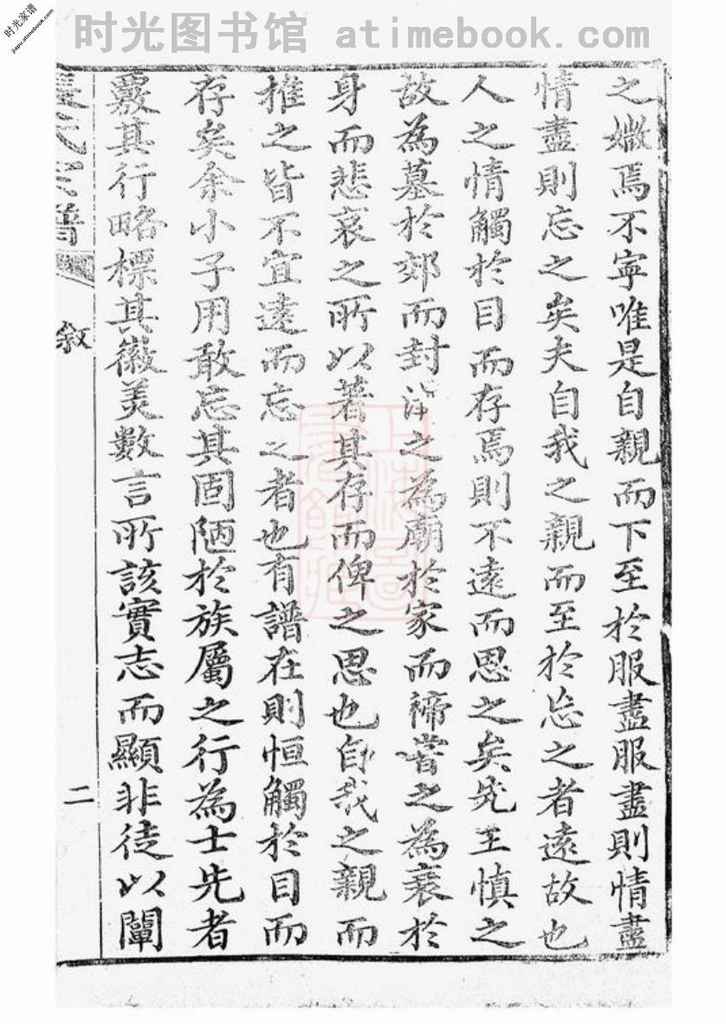 时光图书馆 atimebook.com
时光家谱
jiapu.atimebook.com
之媺焉不寧唯是自親而下至於服盡服盡則情盡
情盡則忘之矣夫自我之親而至於忘之者遠故也
人之情觸於目而存焉則不遠而思之矣先王慎之
故為墓於郊而封溝之為廟於家而禘嘗之為衰於
身而悲哀之所以著其存而俾之思也自我之親而
推之皆不宜遠而忘之者也有譜在則恒觸於目而
存矣余小子用敢忘其固陋於族屬之行為士先者
覈其行略標其徽美數言所該實志而顯非徒以闡
氏宗譜
敘
二